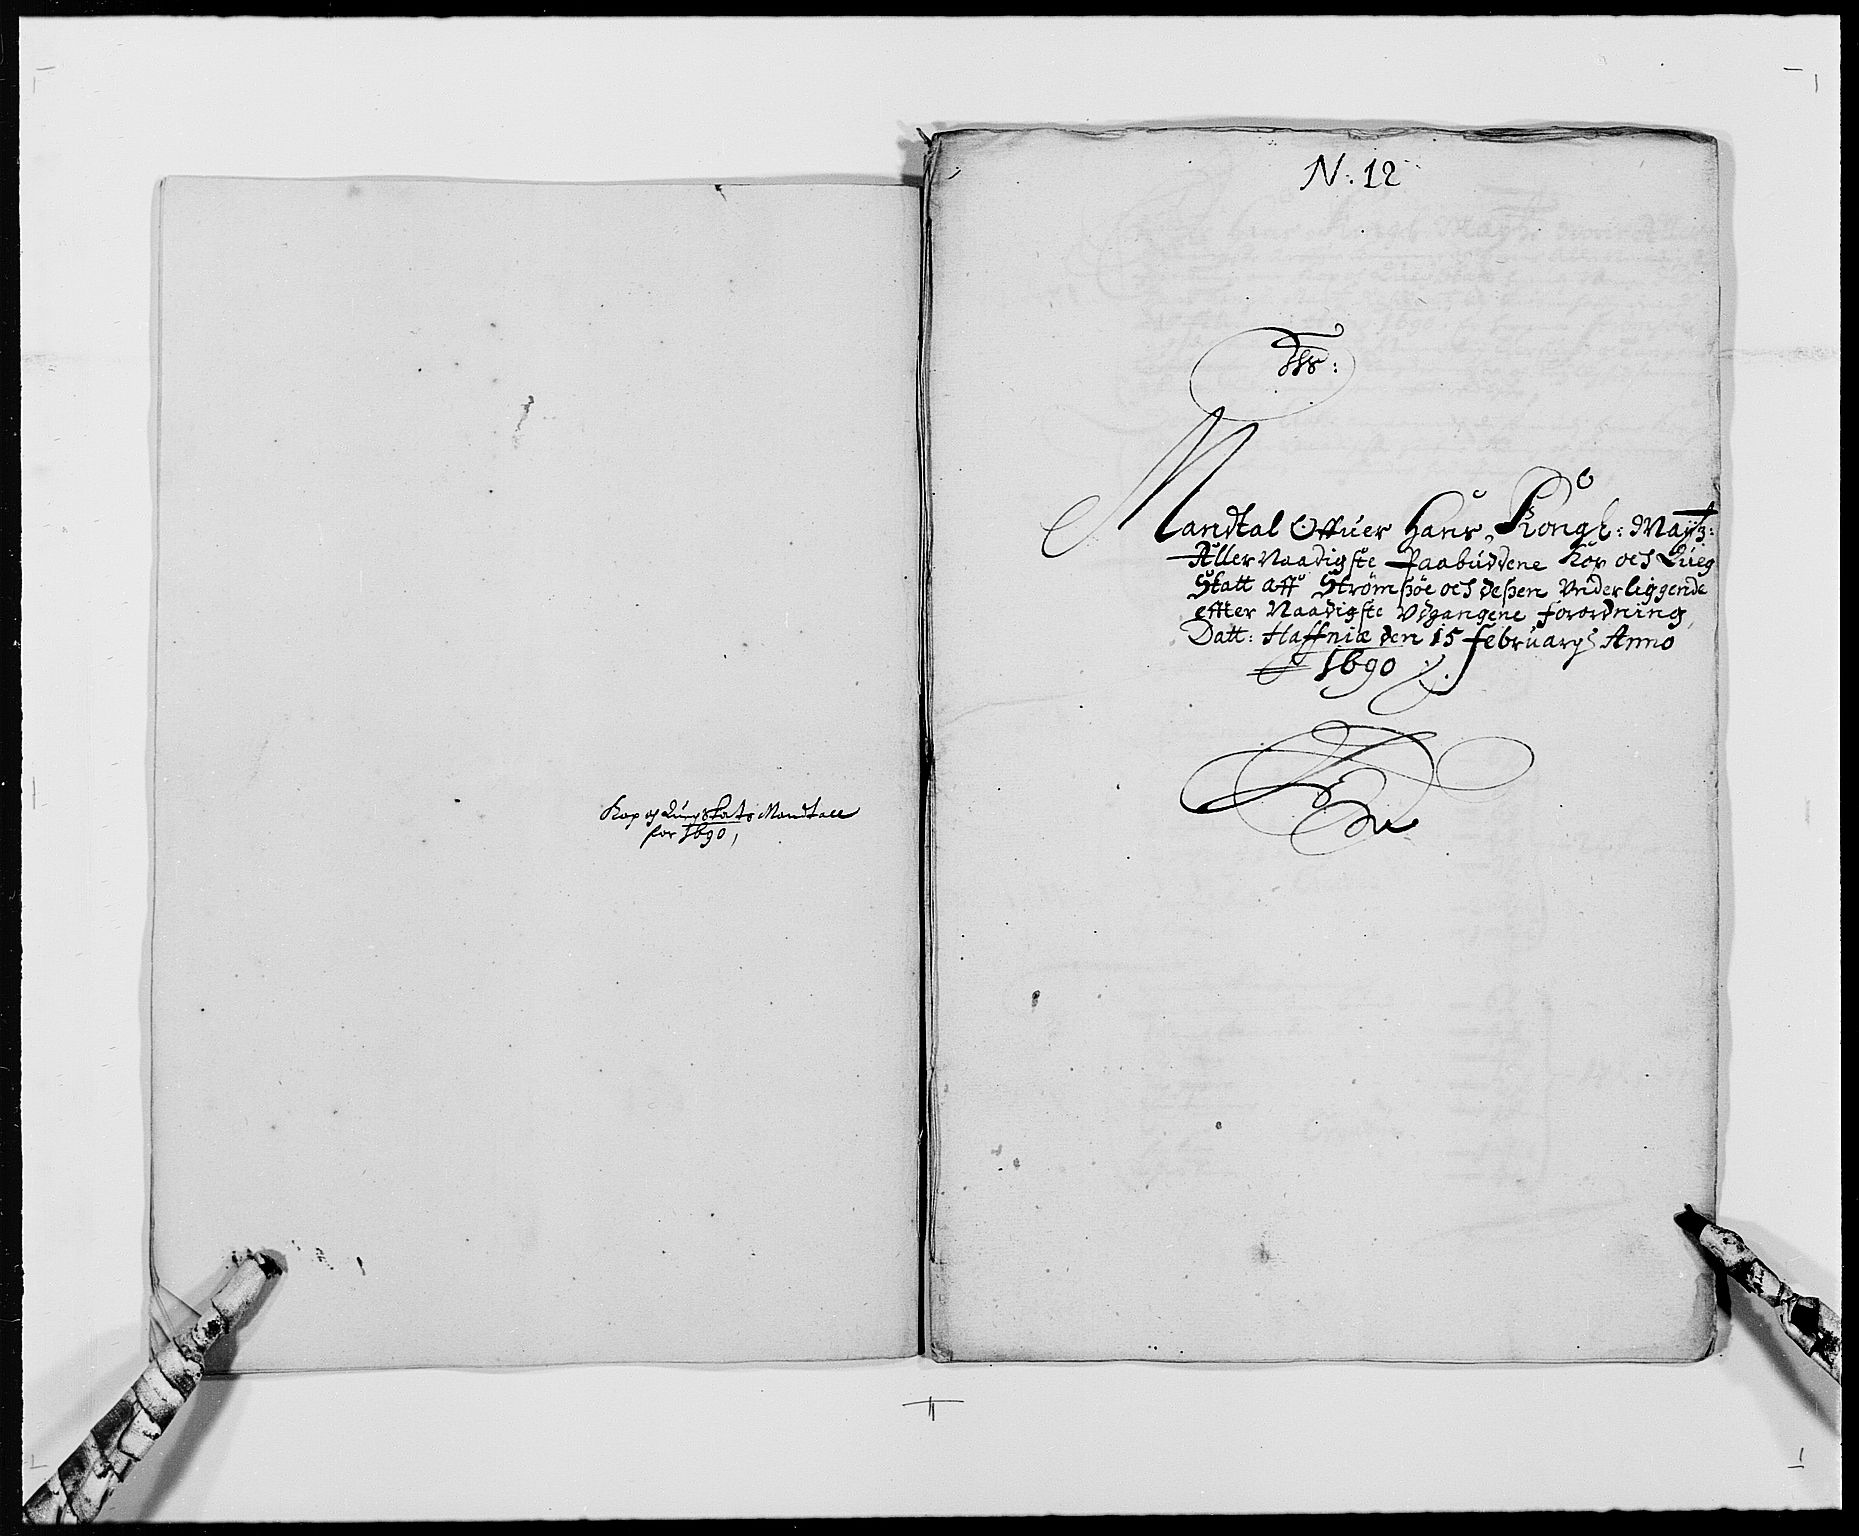 Kop og Quegskats Mandtall
for 1690,
N: 12
Mandtal Offuer Hans Kongl: Mayts:
Aller Naadigste Paabuddene Kop och Queg
Skatt aff Strømsøe och dessen Underliggende
effter Naadigste Udgangene forordning,
Datt: Haffniæ den 15 february Anno
1690